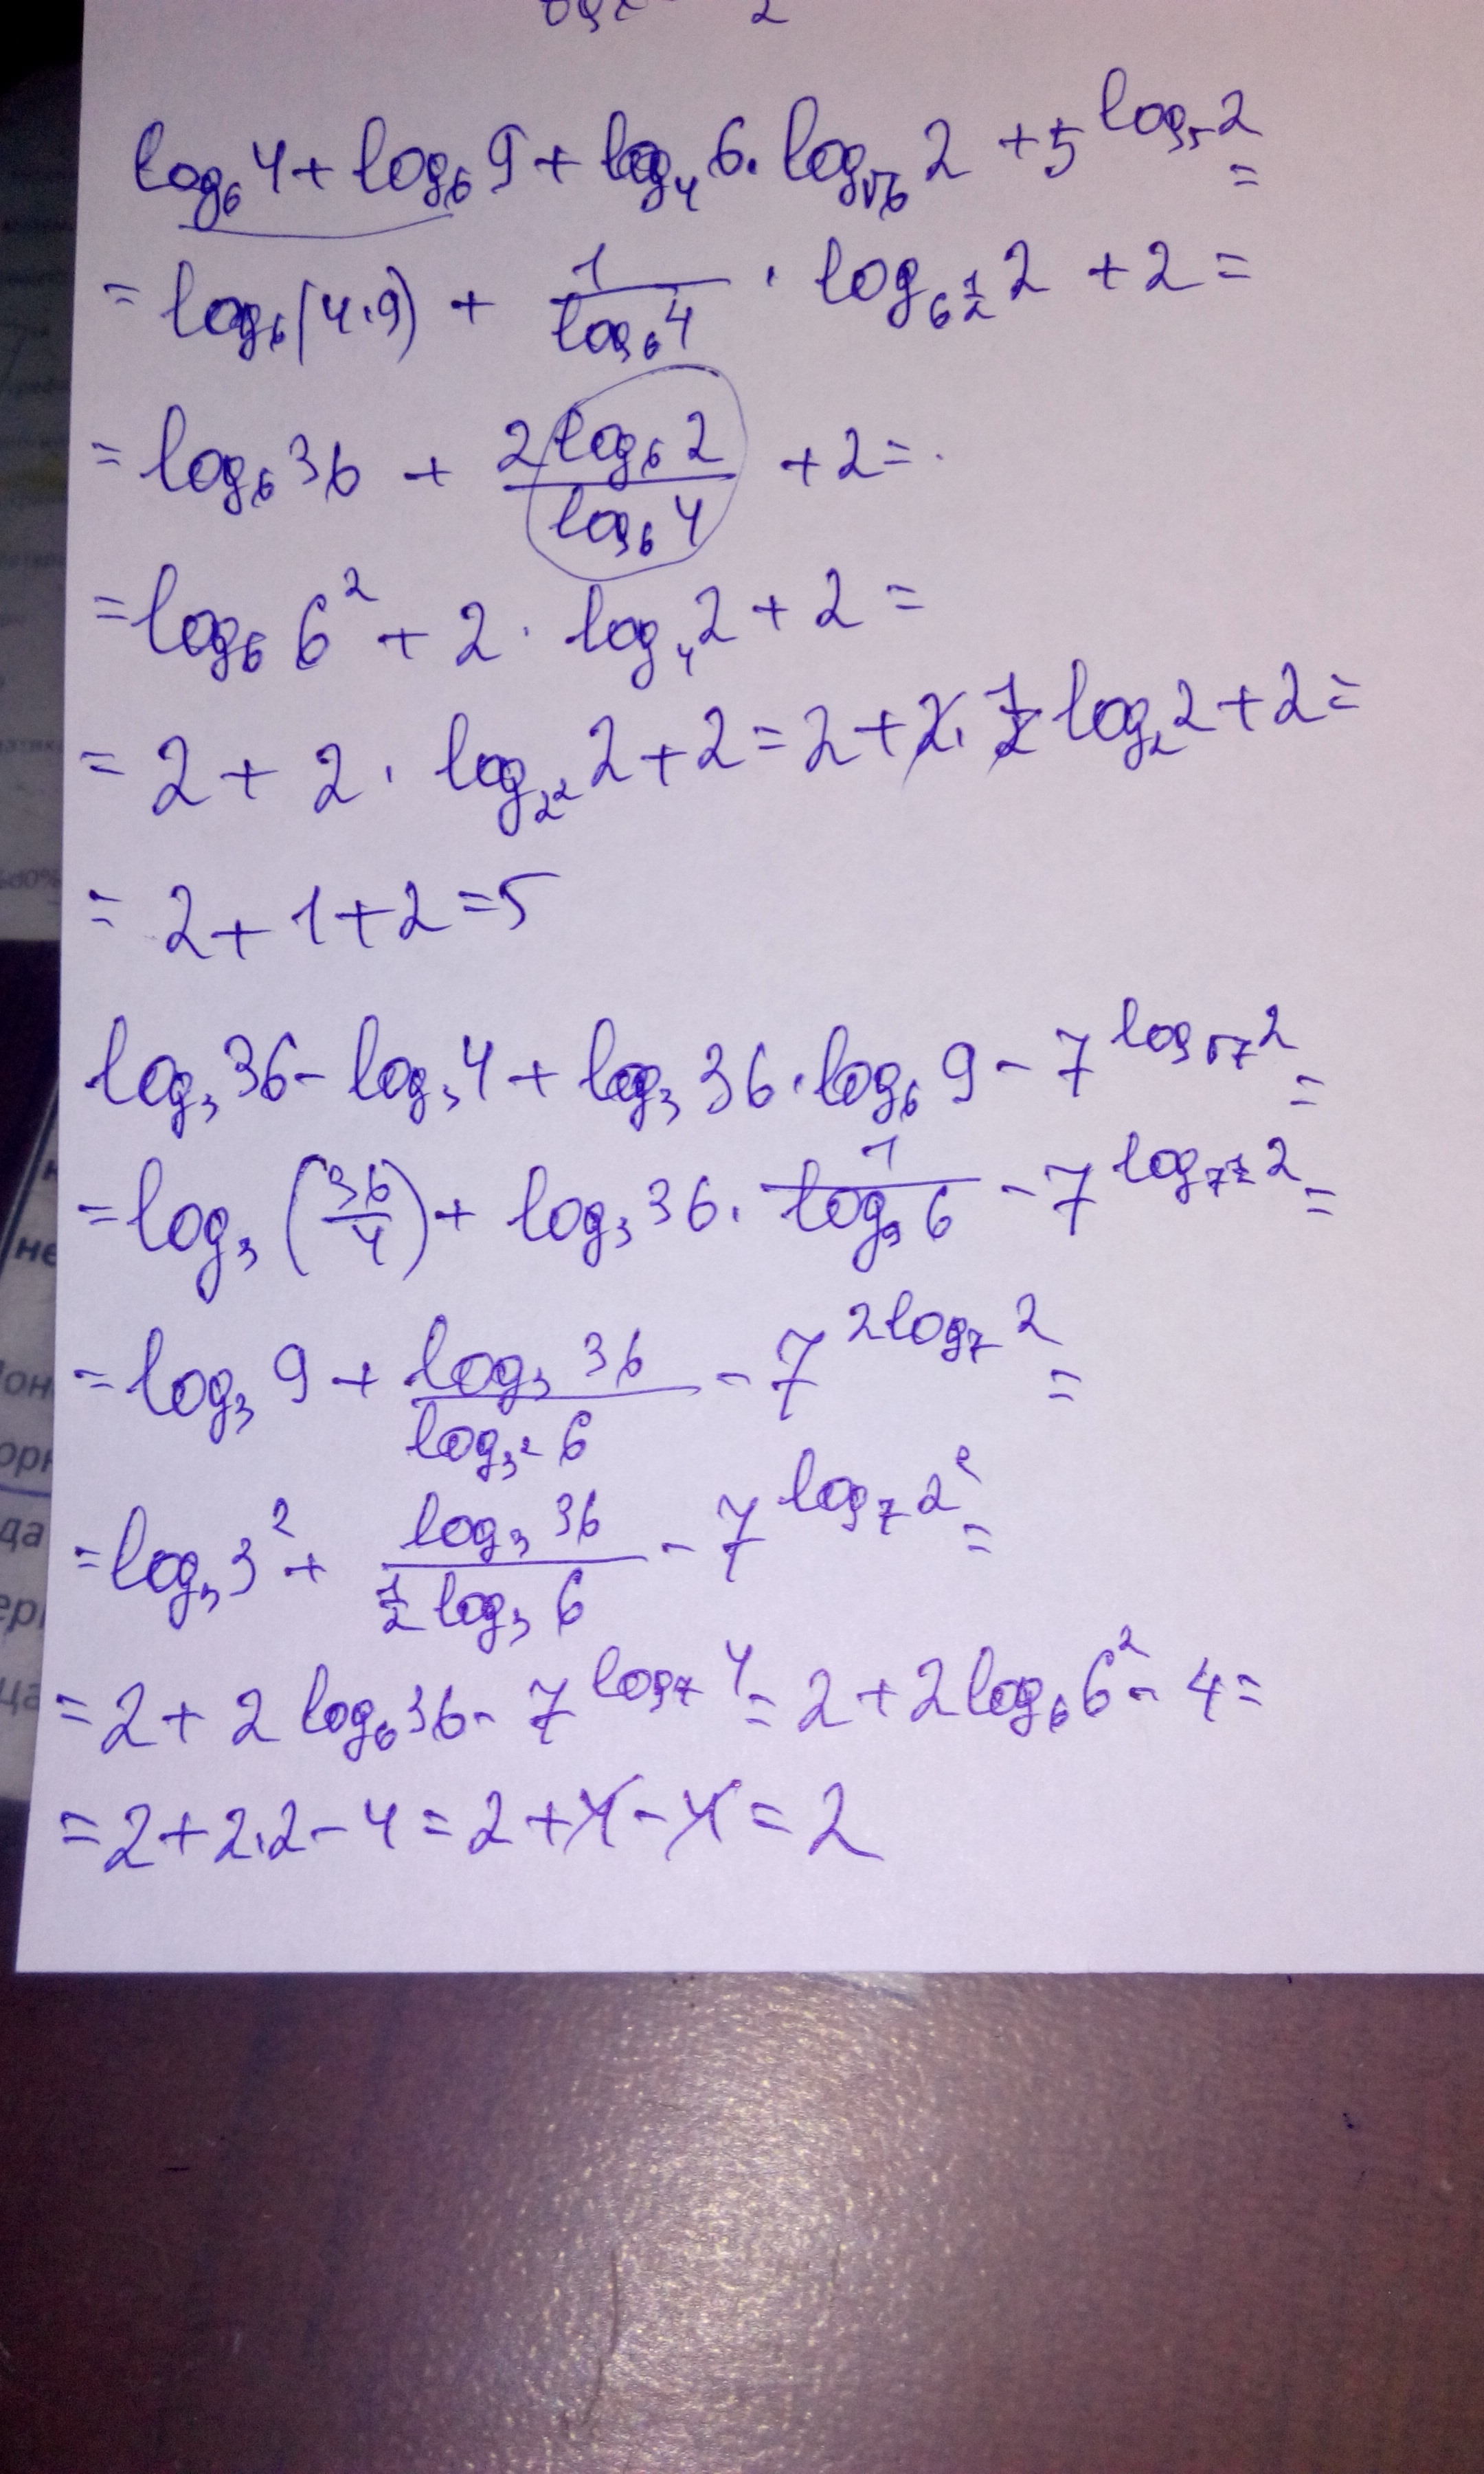 log₆4 + log₆9 + log₄6 · log_√6 2 + 5^(log₅2) =
= log₆(4·9) + 1/(log₆4) · log_(6^(1/2)) 2 + 2 =
= log₆36 + (2log₆2)/(log₆4) + 2 =
= log₆6² + 2 · log₄2 + 2 =
= 2 + 2 · log_(2²) 2 + 2 = 2 + 2 · 1/2 log₂2 + 2 =
= 2 + 1 + 2 = 5
log₃36 - log₃4 + log₃36 · log₆9 - 7^(log_√7 2) =
= log₃(36/4) + log₃36 · 1/(log₉6) - 7^(log_(7^(1/2)) 2) =
= log₃9 + (log₃36)/(log_(3²) 6) - 7^(2log₇2) =
= log₃3² + (log₃36)/(1/2 log₃6) - 7^(log₇2²) =
= 2 + 2log₆36 - 7^(log₇4) = 2 + 2log₆6² - 4 =
= 2 + 2·2 - 4 = 2 + 4 - 4 = 2
не